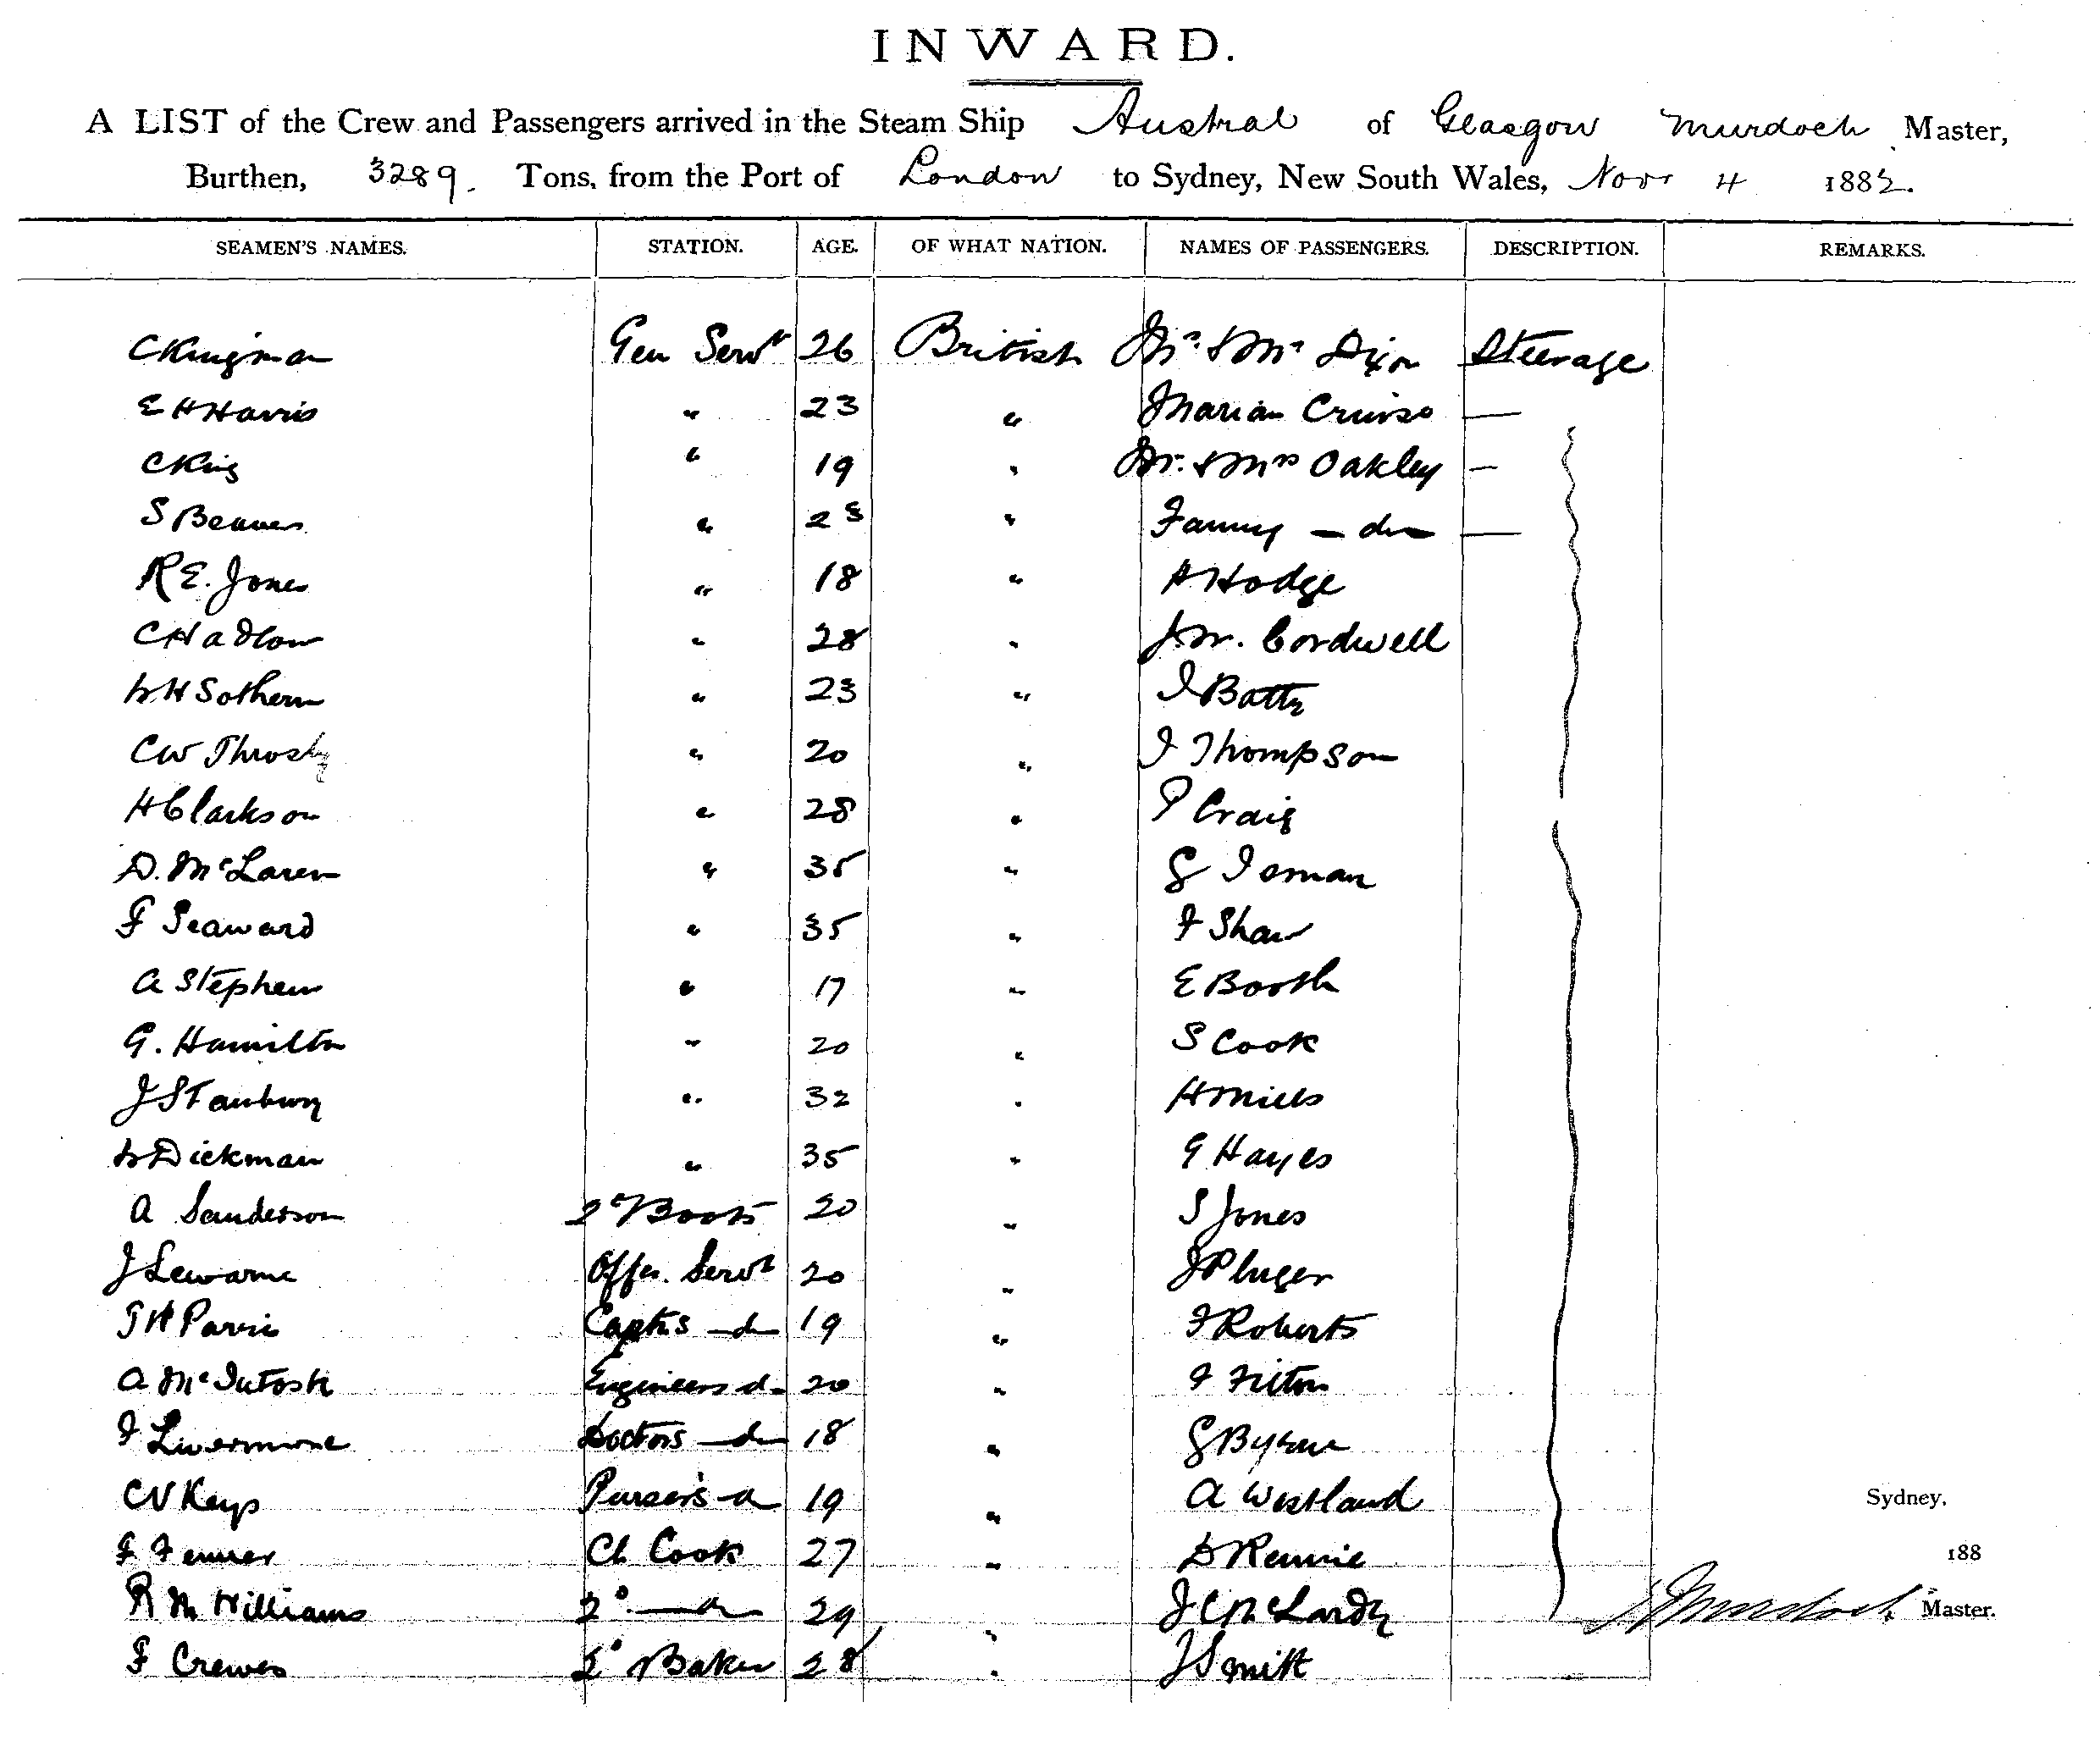 INWARD.
A LIST of the Crew and Passengers arrived in the Steam Ship Austral of Glasgow Murdoch Master,
Burthen, 3289. Tons, from the Port of London to Sydney, New South Wales, Novr 4 1882.
SEAMEN'S NAMES. STATION. AGE. OF WHAT NATION. NAMES OF PASSENGERS. DESCRIPTION. REMARKS.
C Kingman Gen Servt 26 British Mr. & Mrs Dixon Steerage
E H Harris " 23 " Marian —
C King " 19 " Mr. & Mrs Oakley —
S Beaves " 23 " Fanny — do —
R E. Jones " 18 " A Hodge
C Hadlow " 28 " J M. Cordwell
W H Sothern " 23 " J Batty
C W Throsby " 20 " J Thompson
H Clarkson " 28 " P Craig
D. McLaren " 35 " G
F Seaward " 35 " F Shaw
A Stephen " 17 " E Booth
G. Hamilton " 20 " S Cook
J Stanbury " 32 " H Mills
W Dickman " 35 " G Hayes
A Sanderson 2d Boots 20 " S Jones
J Lewarne Offrs. Servt 20 " J Pluger
G H Parris Capts — do 19 " F Roberts
A McIntosh Engineers do 20 " F Fitton
F Livermore Doctors — do 18 " G Byrne
C V Keys Pursers — do 19 " A Westland Sydney,
F Fenner Ch Cook 27 " D Rennie 188
R M Williams 2d — do 29 " J C McLardy J Murdoch Master.
F Crewes 2d Baker 28 " J Smith